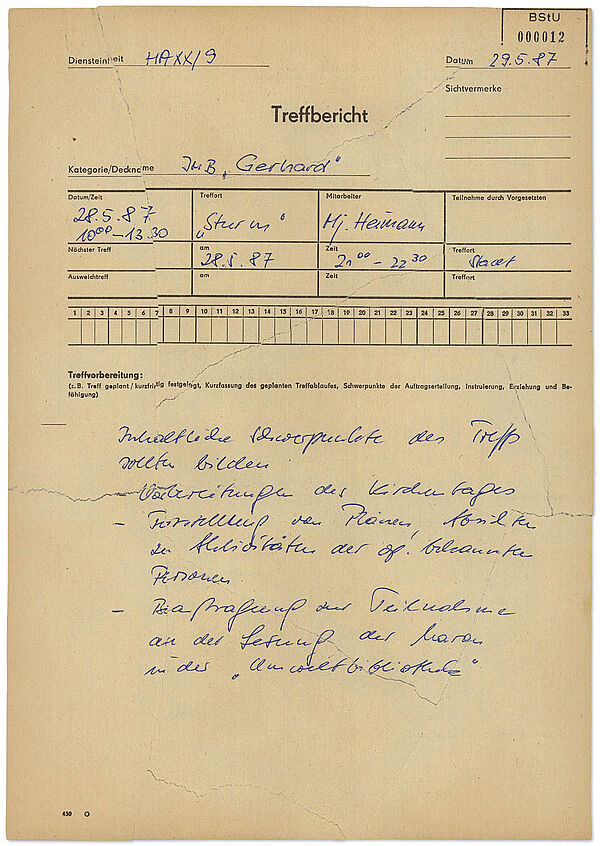 BStU
000012
Diensteinheit HA XX/9 Datum 29.5.87
Sichtvermerke
Treffbericht
Kategorie/Deckname IMB „Gerhard“
Datum/Zeit Treffort Mitarbeiter Teilnahme durch Vorgesetzten
28.5.87 „Sturm“ Mj. Heimann
10⁰⁰–13.30
Nächster Treff am Zeit Treffort
28.5.87 21⁰⁰ – 22³⁰ Stadt
Ausweichtreff am Zeit Treffort
1 2 3 4 5 6 7 8 9 10 11 12 13 14 15 16 17 18 19 20 21 22 23 24 25 26 27 28 29 30 31 32 33
Treffvorbereitung:
(z. B. Treff geplant / kurzfristig festgelegt, Kurzfassung des geplanten Treffablaufes, Schwerpunkte der Auftragserteilung, Instruierung, Erziehung und Be-
fähigung)
Inhaltliche Schwerpunkte des Treffs
sollten bilden
– Vorbereitungen des Kirchentages
– Feststellung von Plänen, Absichten
zu Aktivitäten der op. bekannten
Personen
– Beauftragung zur Teilnahme
an der Lesung der Maron
in der „Umweltbibliothek“
450